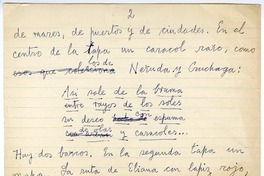 2
de mares, de puertos y de ciudades. En el
centro de la tapa un caracol raro, como
los de
esos que colecciona Neruda y Cruchaga:
Así sale de la bruma
entre rayos de los soles
un deseo con espuma
de olas
y caracoles...
Hay dos barcos. En la segunda tapa un
mapa. La ruta de Eliana con lápiz rojo,